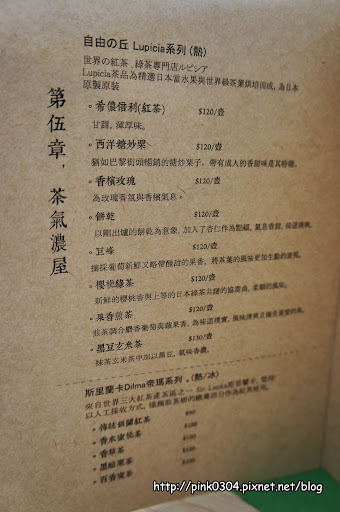 第伍章，茶氣濃屋
自由の丘 Lupicia系列 (熱)
世界の紅茶、綠茶專門店ルピシア
Lupicia茶品為精選日本當水果與世界綠茶葉烘培而成，為日本
原製原裝
。希儂倍利(紅茶) $120/壺
甘醇，渾厚味。
。西洋糖炒栗 $120/壺
猶如巴黎街頭暢銷的糖炒栗子，帶有成人的香甜味是其特徵。
。香檳玫瑰 $120/壺
為玫瑰香氛與香檳氣息。
。餅乾 $120/壺
以剛出爐的餅乾為意象，加入了杏仁作為點綴，氣息香甜
。巨峰 $120/壺
摘採葡萄新鮮又略帶酸甜的果香，將茶葉的風味更加生動的重現。
。櫻桃綠茶 $120/壺
新鮮的櫻桃香與上等的日本綠茶共譜的協奏曲，柔順的風味。
。果香煎茶 $120/壺
煎茶調合麝香葡萄與蘋果香，為味道樸實，風味清爽
。黑豆玄米茶 $130/壺
抹茶玄米茶中加以黑豆，氣味香濃。
斯里蘭卡Dilma帝瑪系列。(熱/冰)
來自世界三大紅茶產茶區之一
以人工採收方式，
。傳統錫蘭紅茶 $90
。香水蜜桃茶 $100
。香草茶 $100
。黑醋栗茶 $100
。百香蜜茶
http://pink0304.pixnet.net/blog